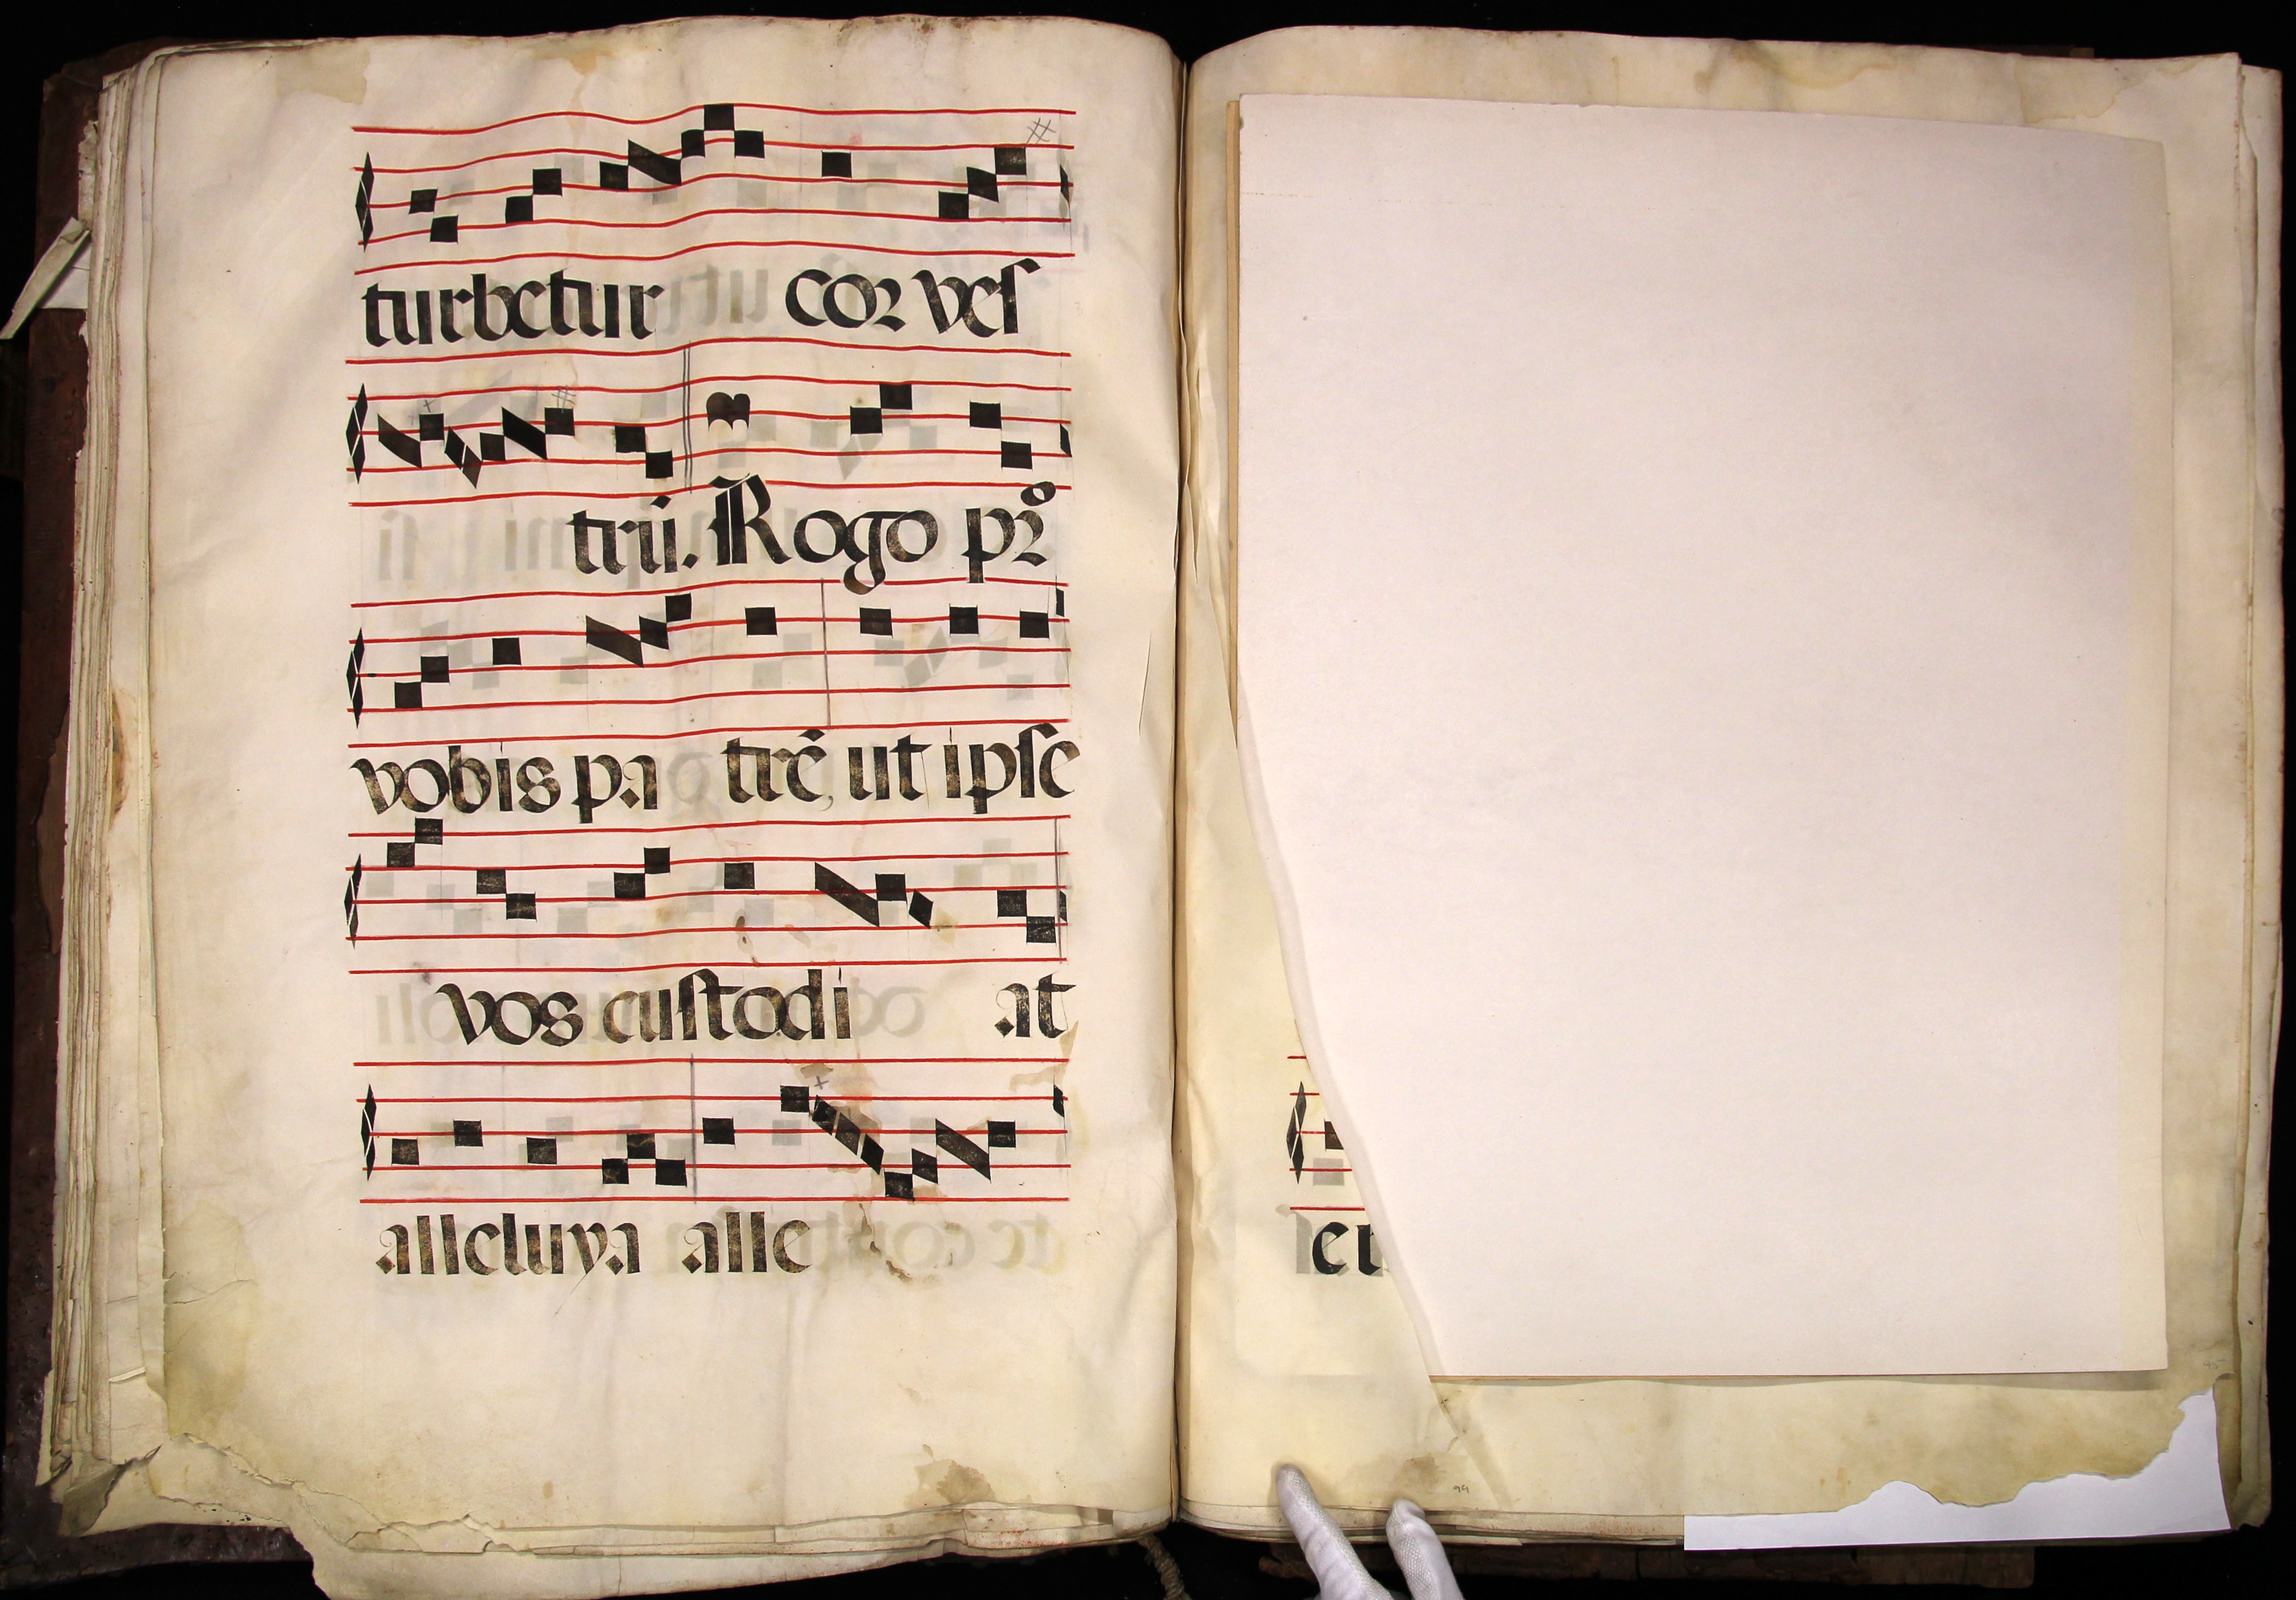 turbetur cor veſ
trū. Rogo pro
vobis pa trē, ut ipſe
vos cuſtodi at
alleluya alle
99
95